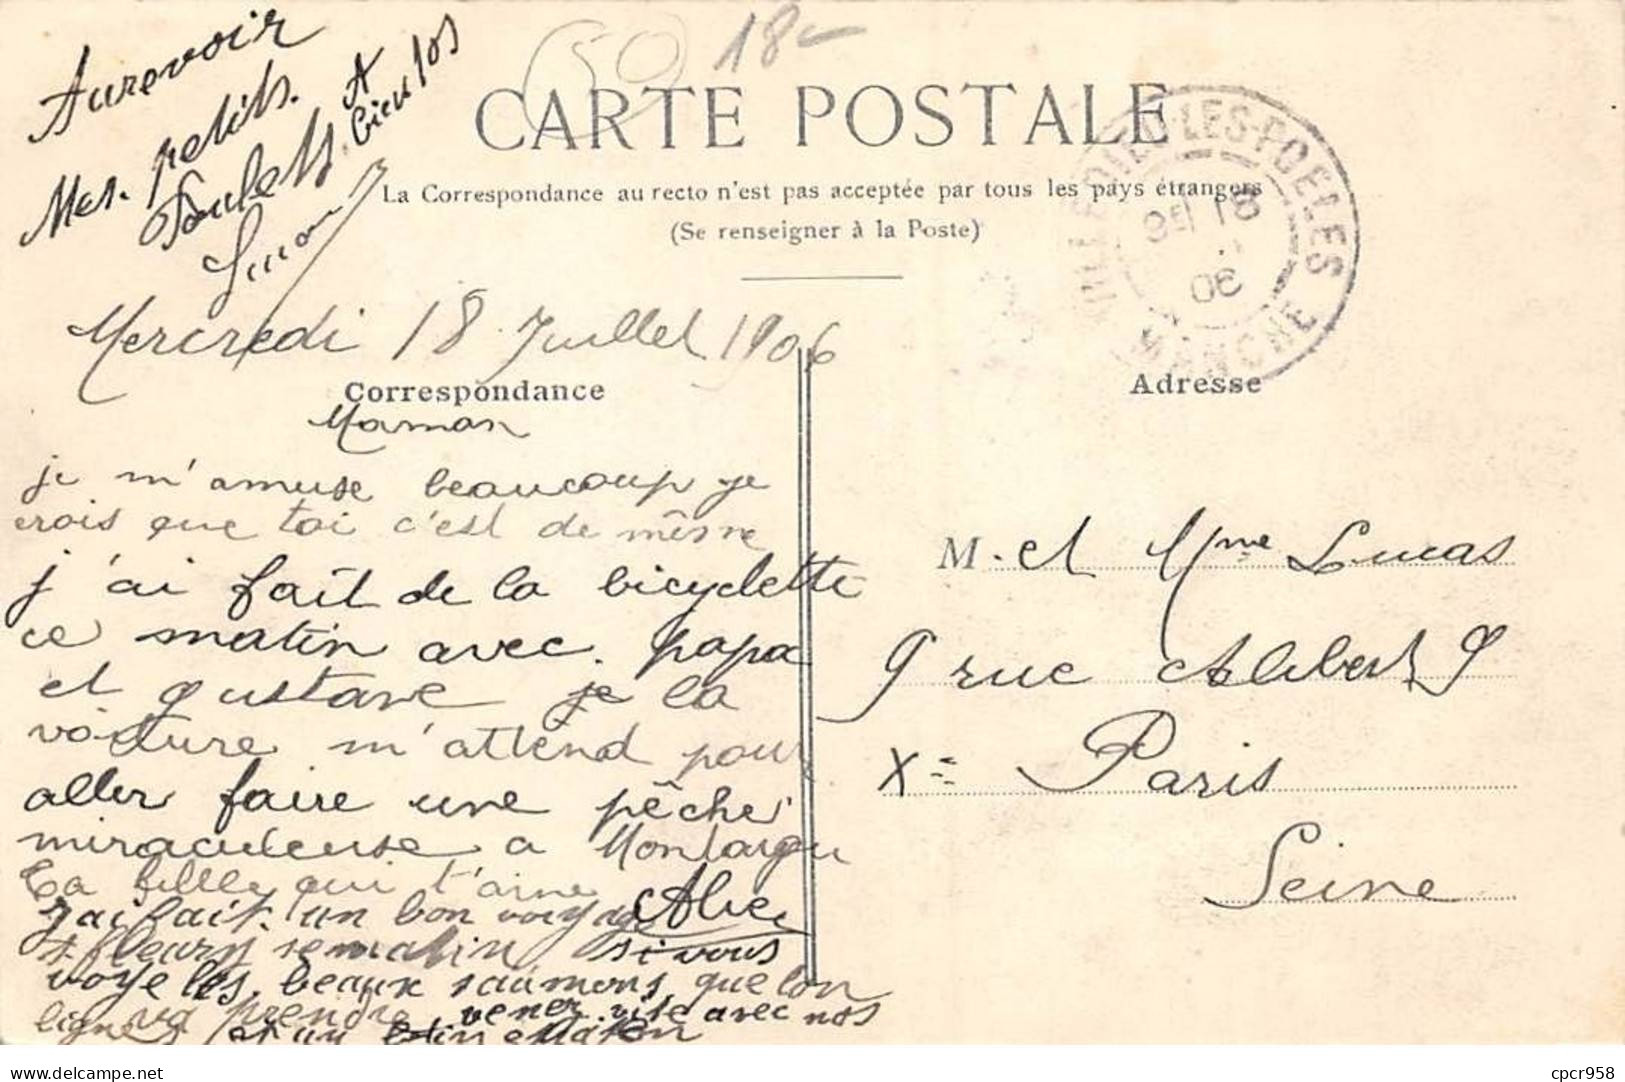 Aurevoir
Mes. petits.
Poulets. A bientos
Simon
50
18-
CARTE POSTALE
La Correspondance au recto n'est pas acceptée par tous les pays étrangers
(Se renseigner à la Poste)
VILLEDIEU-LES-POELES
MANCHE
06
Mercredi 18 Juillet 1906
Correspondance
Adresse
Maman
je m'amuse beaucoup je
crois que toi c'est de même
j'ai fait de la bicyclette
ce matin avec. papa
et gustave je la
voiture m'attend pour
aller faire une pêche
miraculeuse a Montaigu
Ta fille qui t'aime
Alice
J'ai fait. un bon voyage
st fleury se matin si vous
voye les. beaux saumons que lon
va prendre vener vite avec nos
lignes et un
M. et Mme Lucas
9 rue Alibert 9
Xe Paris
Seine
delcampe.net
cpcr958